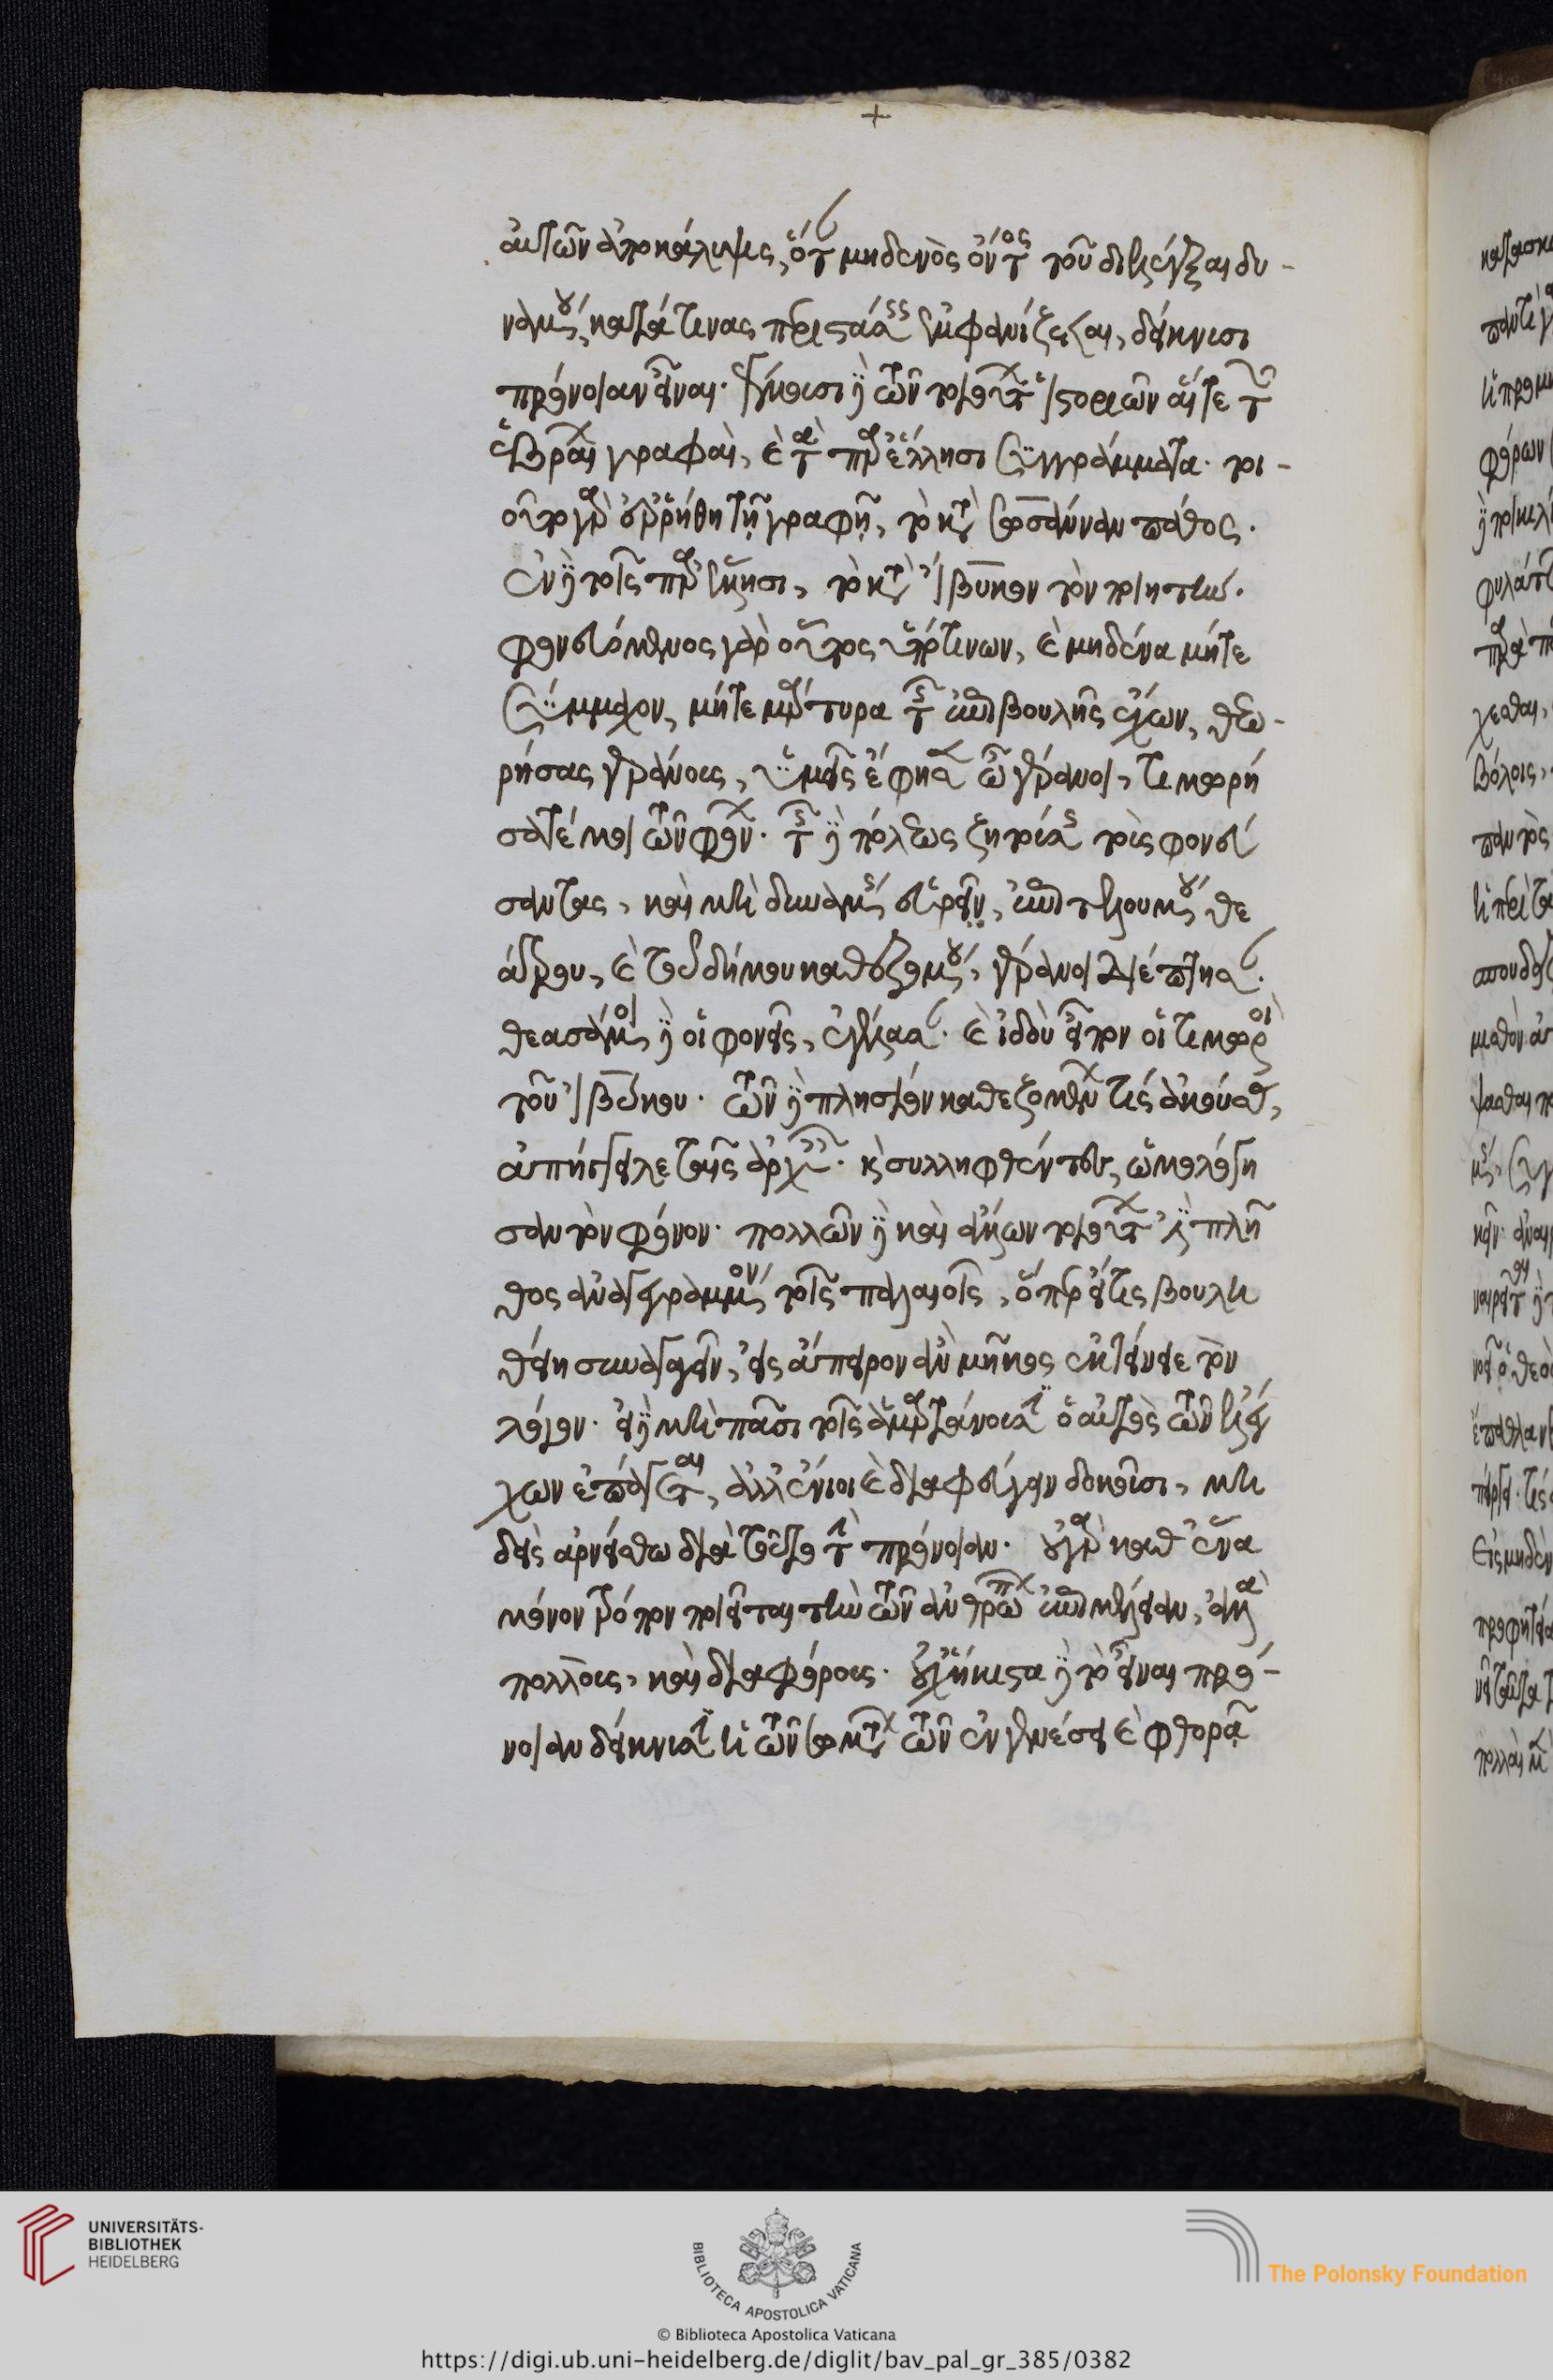 +
αὐτῶν ἀποκάλυψις, ὅταν μηδενὸς ὄντος τοῦ διελέγξαι δυ-
ναμένου, κατά τινας περιστάσεις ἐμφανίζεσθαι, δείκνυσι
πρόνοιαν εἶναι. γέμουσι δὲ τῶν τοιούτων ἱστοριῶν αἵ τε τῶν
ἑβραίων γραφαὶ, καὶ τὰ παρ' ἕλλησι συγγράμματα. τοι-
οῦτο γὰρ τῇ γραφῇ, τὸ κατὰ σωσάνναν πάθος.
ἐν δὲ τοῖς παρ' ἕλλησι, τὸ κατὰ ἴβυκον τὸν ποιητήν.
φονευόμενος γὰρ οὗτος ὑπό τινων, καὶ μηδένα μήτε
σύμμαχον, μήτε μάρτυρα τῆς ἐπιβουλῆς ἔχων, θεω-
ρήσας γεράνους, ὑμεῖς ἔφησεν ὦ γέρανοι, τιμωρή
σατέ μοι τὸν φόνον. τῆς δὲ πόλεως ζητούσης τοὺς φονεύ
σαντας, καὶ μὴ δυναμένης εὑρεῖν, ἐπιτελουμένου θε
άτρου, καὶ τοῦ δήμου καθεζομένου, γέρανοι διέπτησαν.
θεασάμενοι δὲ οἱ φονεῖς, ἐγέλασαν. καὶ ἰδοὺ εἶπον οἱ τιμωροὶ
τοῦ ἰβύκου. τῶν δὲ πλησίον καθεζομένων τίς ἀκούσας,
ἀπήγγειλε ταῖς ἀρχαῖς. καὶ συλληφθέντες, ὡμολόγη
σαν τὸν φόνον. πολλῶν δὲ καὶ ἄλλων τοιούτων ἐστὶ πλῆ
θος ἀναγεγραμμένον τοῖς παλαιοῖς, ὅπερ εἴ τις βουλη
θείη συναγαγεῖν, εἰς ἄπειρον ἂν μῆκος ἐκτείνειε τὸν
λόγον. εἰ δὲ μὴ πᾶσι τοῖς ἁμαρτάνουσιν ὁ αὐτὸς τῶν ἐλέγ
χων ἐπάγεται, ἀλλ' ἔνιοι καὶ διαφεύγειν δοκοῦσι, μη
δεὶς ἀρνείσθω διὰ τοῦτο τὴν πρόνοιαν. οὐ γὰρ καθ' ἕνα
μόνον τρόπον ποιεῖται τὴν τῶν ἀνθρώπων ἐπιμέλειαν, ἀλλὰ
πολλοῖς, καὶ διαφόροις. οὐχ' ἥκιστα δὲ τὸ εἶναι πρό-
νοιαν δείκνυσιν ἡ τῶν σωμάτων τῶν ἐν γενέσει καὶ φθορᾷ
UNIVERSITÄTS-
BIBLIOTHEK
HEIDELBERG
BIBLIOTECA APOSTOLICA VATICANA
The Polonsky Foundation
© Biblioteca Apostolica Vaticana
https://digi.ub.uni-heidelberg.de/diglit/bav_pal_gr_385/0382